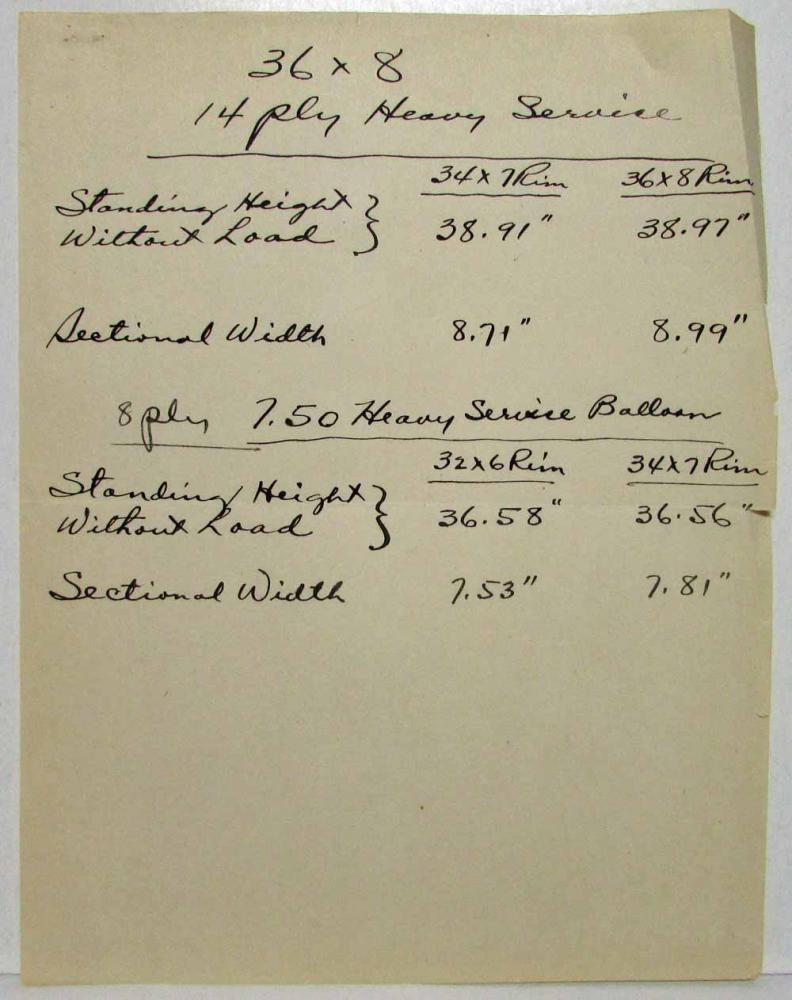 36 x 8
14 ply Heavy Service
34x7 Rim 36x8 Rim
Standing Height }
Without Load } 38.91" 38.97"
Sectional Width 8.71" 8.99"
8 ply 7.50 Heavy Service Balloon
32x6 Rim 34x7 Rim
Standing Height }
Without Load } 36.58" 36.56"
Sectional Width 7.53" 7.81"